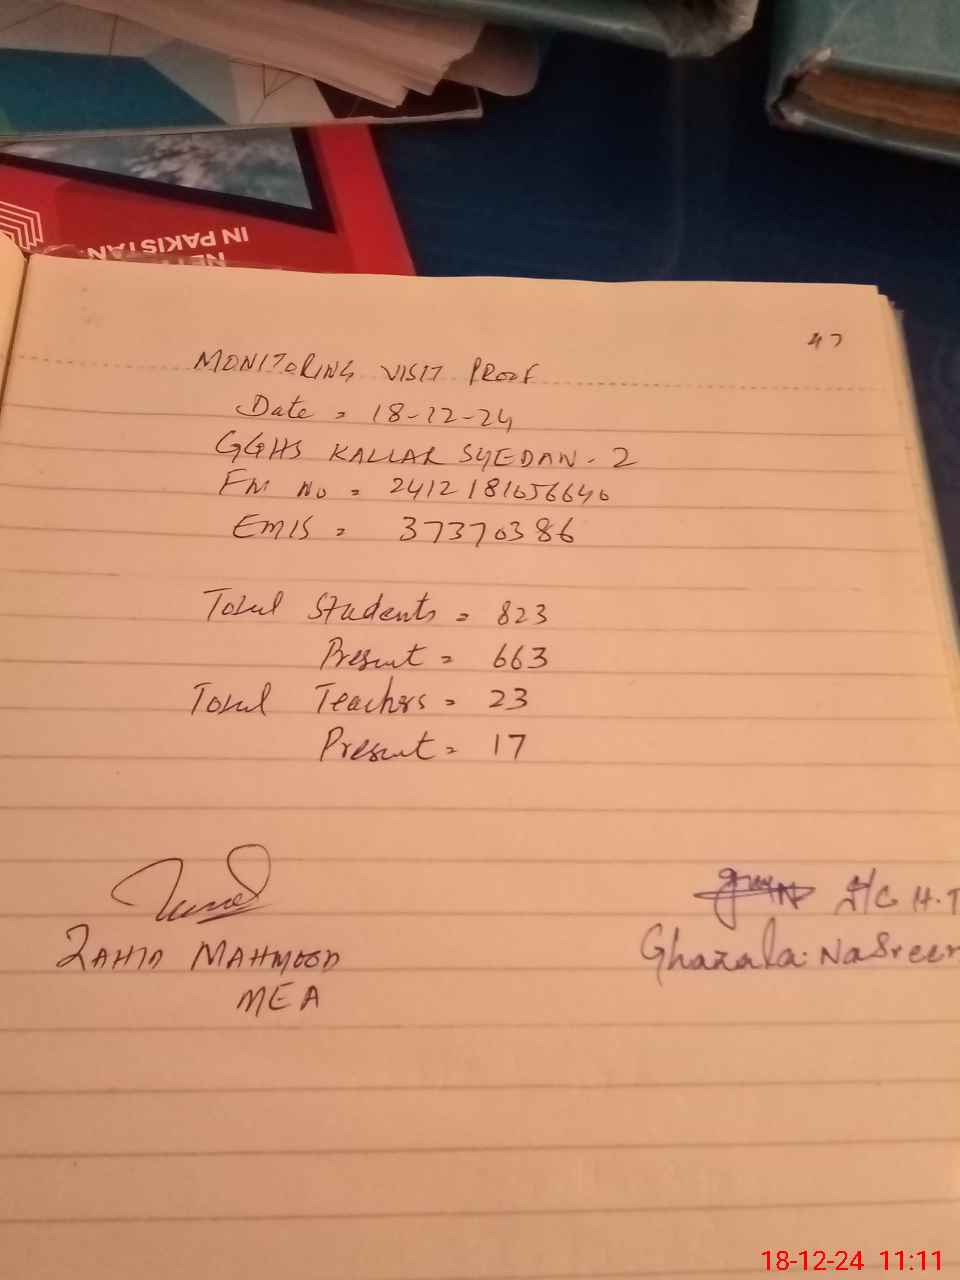 NET
IN PAKISTAN
47
MONITORING VISIT PROOF
Date = 18-12-24
GGHS KALLAR SYEDAN - 2
FM NO = 2412181056640
EMIS = 37370386
Total Students = 823
Present = 663
Total Teachers = 23
Present = 17
I/C H.T
ZAHID MAHMOOD
Ghazala Nasreen
MEA
18-12-24 11:11